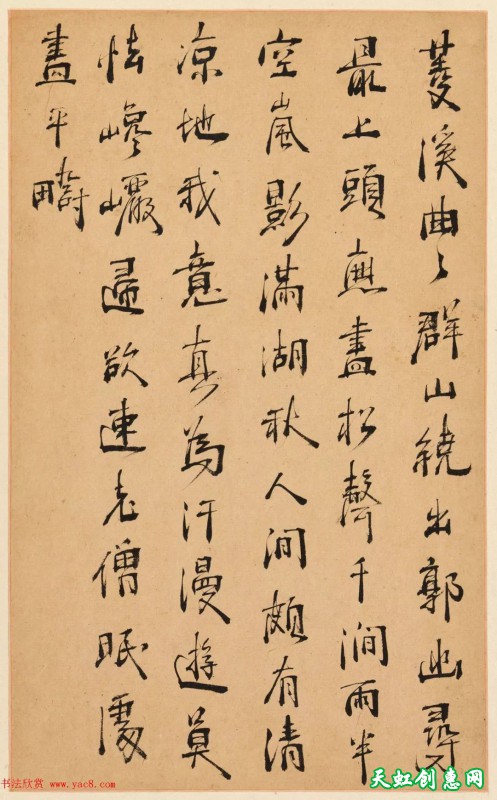 菱溪曲〻群山繞出郭幽尋
最上頭無盡松聲千澗雨半
空嵐影滿湖秋人間頗有清
凉地我意真為汗漫遊莫
怯巉巗欲老僧眠處
盡平疇
书法欣赏 www.yac8.com
天虹创惠网